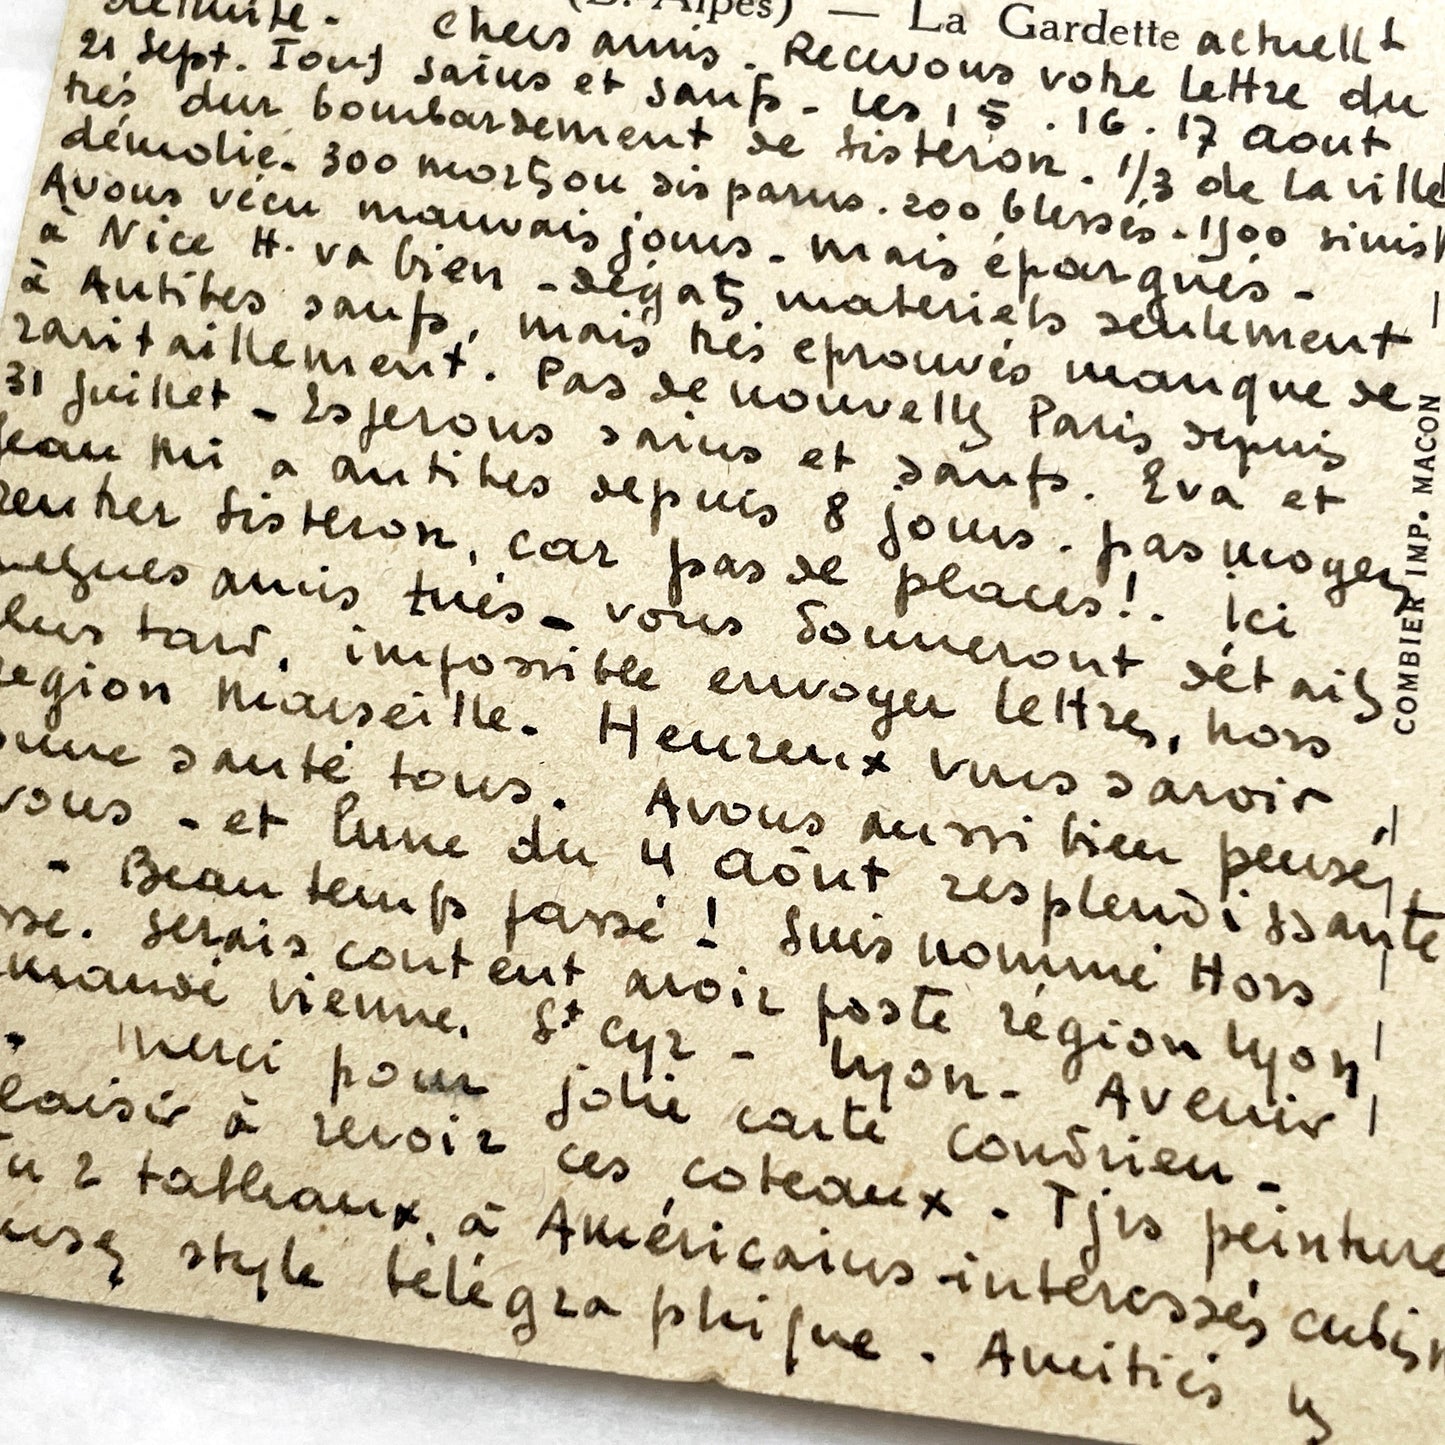 (B. Alpes) — La Gardette actuellt
détruite - Chers amis. Recevons votre lettre du
21 Sept. Tous sains et saufs - les 15. 16. 17 aout
très dur bombardement de Sisteron. 1/3 de la ville
démolie. 300 morts ou disparus. 200 blessés. 1500 sinist
Avons vécu mauvais jours - mais épargnés -
à Nice H. va bien - dégats materiels seulement
à Antibes saufs, mais très eprouvés manque de
ravitaillement. Pas de nouvelles Paris depuis
31 Juillet - Esperons sains et saufs. Eva et
Jean Mi a antibes depuis 8 jours. pas moyen
rentrer Sisteron, car pas de places!. Ici
uelques amis tués - vous donneront détails
lus tard, impossible envoyer lettres, hors
region Marseille. Heureux vous savoir
onne santé tous. Avons aussi bien pensé
vous - et lune du 4 Août resplendissante
- Beau temps passé! Suis nommé Hors
sse. Serais content avoir poste région Lyon
mandé Vienne. St Cyr - Lyon. Avenir
. Merci pour jolie carte Condrieu -
laisir à revoir ces coteaux. Tjrs peinture
u 2 tableaux, à Américains intéressés cubis
usez style télégraphique. Amitiés
COMBIER IMP. MACON